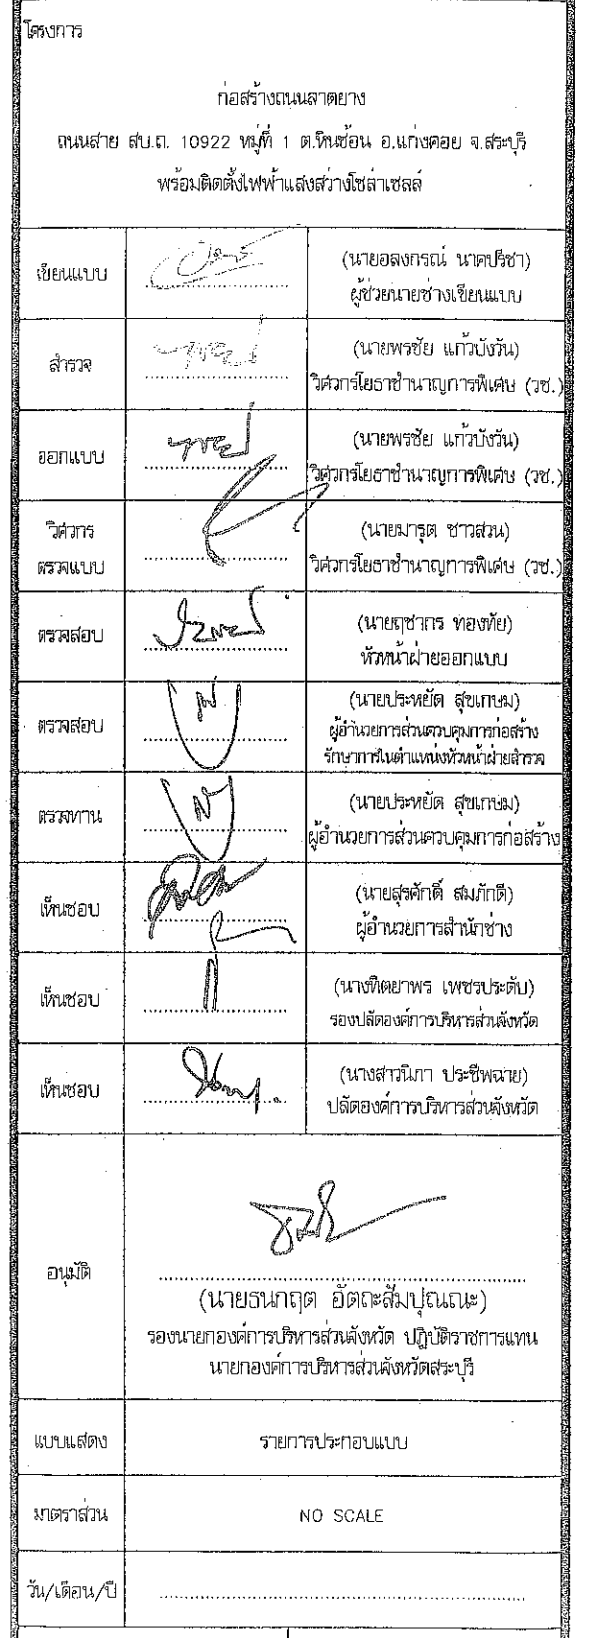 โครงการ
ก่อสร้างถนนลาดยาง
ถนนสาย สบ.ถ. 10922 หมู่ที่ 1 ต.หินซ้อน อ.แก่งคอย จ.สระบุรี
พร้อมติดตั้งไฟฟ้าแสงสว่างโซล่าเซลล์
เขียนแบบ
(นายอลงกรณ์ นาคปรีชา)
ผู้ช่วยนายช่างเขียนแบบ
สำรวจ
(นายพรชัย แก้วบังวัน)
วิศวกรโยธาชำนาญการพิเศษ (วช.)
ออกแบบ
(นายพรชัย แก้วบังวัน)
วิศวกรโยธาชำนาญการพิเศษ (วช.)
วิศวกร
ตรวจแบบ
(นายมารุต ชาวสวน)
วิศวกรโยธาชำนาญการพิเศษ (วช.)
ตรวจสอบ
(นายฤชากร ทองทัย)
หัวหน้าฝ่ายออกแบบ
ตรวจสอบ
(นายประหยัด สุขเกษม)
ผู้อำนวยการส่วนควบคุมการก่อสร้าง
รักษาการในตำแหน่งหัวหน้าฝ่ายสำรวจ
ตรวจทาน
(นายประหยัด สุขเกษม)
ผู้อำนวยการส่วนควบคุมการก่อสร้าง
เห็นชอบ
(นายสุรศักดิ์ สมภักดี)
ผู้อำนวยการสำนักช่าง
เห็นชอบ
(นางทิตยาพร เพชรประดับ)
รองปลัดองค์การบริหารส่วนจังหวัด
เห็นชอบ
(นางสาวนิภา ประชีพฉาย)
ปลัดองค์การบริหารส่วนจังหวัด
อนุมัติ
(นายธนกฤต อัตถะสัมปุณณะ)
รองนายกองค์การบริหารส่วนจังหวัด ปฏิบัติราชการแทน
นายกองค์การบริหารส่วนจังหวัดสระบุรี
แบบแสดง
รายการประกอบแบบ
มาตราส่วน
NO SCALE
วัน/เดือน/ปี